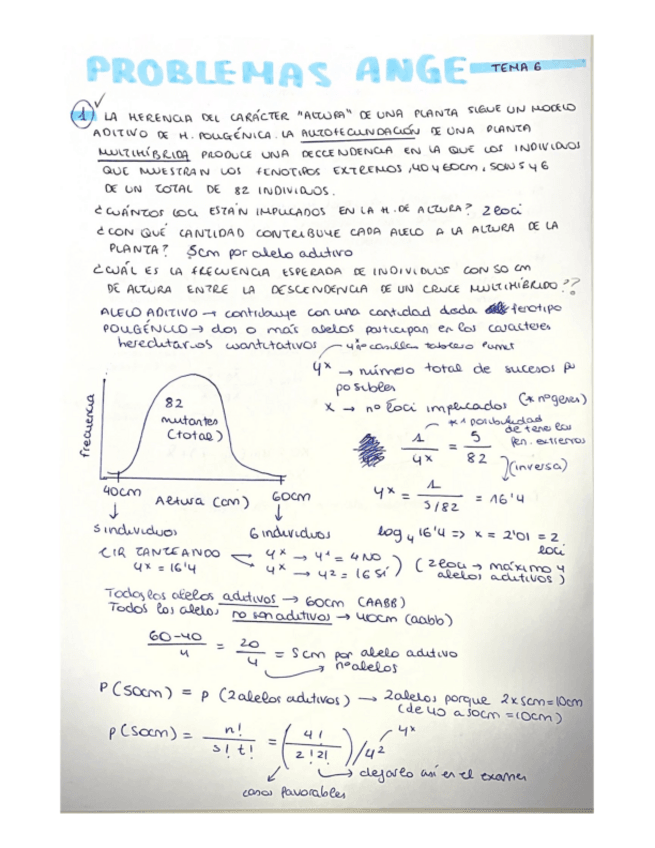 PROBLEMAS ANGE TEMA 6
1 LA HERENCIA DEL CARÁCTER "ALTURA" DE UNA PLANTA SIGUE UN MODELO
ADITIVO DE H. POLIGÉNICA. LA AUTOFECUNDACIÓN DE UNA PLANTA
MULTIHÍBRIDA PRODUCE UNA DECCENDENCIA EN LA QUE LOS INDIVIDUOS
QUE MUESTRAN LOS FENOTIPOS EXTREMOS, 40 y 60cm, SON 5 y 6
DE UN TOTAL DE 82 INDIVIDUOS.
¿CUÁNTOS LOCI ESTÁN IMPLICADOS EN LA H. DE ALTURA? 2 loci
¿CON QUÉ CANTIDAD CONTRIBUYE CADA ALELO A LA ALTURA DE LA
PLANTA? 5cm por alelo aditivo
¿CUÁL ES LA FRECUENCIA ESPERADA DE INDIVIDUOS CON 50 cm
DE ALTURA ENTRE LA DESCENDENCIA DE UN CRUCE MULTIHÍBRIDO??
ALELO ADITIVO → contribuye con una cantidad dada fenotipo
POLIGÉNICO → dos o más alelos participan en los caracteres
hereditarios cuantitativos
4ˣ nº casillas tablero Punnet
4ˣ → número total de sucesos
posibles
x → nº loci implicados (*nº genes)
*1 posibilidad
de tener los
fen. extremos
1/4ˣ = 5/82
(inversa)
4ˣ = 1/(5/82) = 16'4
log₄ 16'4 => x = 2'01 = 2
loci
frecuencia
82
mutantes
(total)
40cm Altura (cm) 60cm
5 individuos 6 individuos
CIR TANTEANDO 4ˣ → 4¹ = 4 NO
4ˣ = 16'4 4ˣ → 4² = 16 SÍ
(2 loci → máximo 4
alelos aditivos)
Todos los alelos aditivos → 60cm (AABB)
Todos los alelos no son aditivos → 40cm (aabb)
60-40/4 = 20/4 = 5 cm por alelo aditivo
nº alelos
P(50cm) = P (2 alelos aditivos) → 2 alelos porque 2x5cm=10cm
(de 40 a 50cm = 10cm)
P(50cm) = n!/s! t! = (4!/2!2!)/4²
4ˣ
dejarlo así en el examen
casos favorables